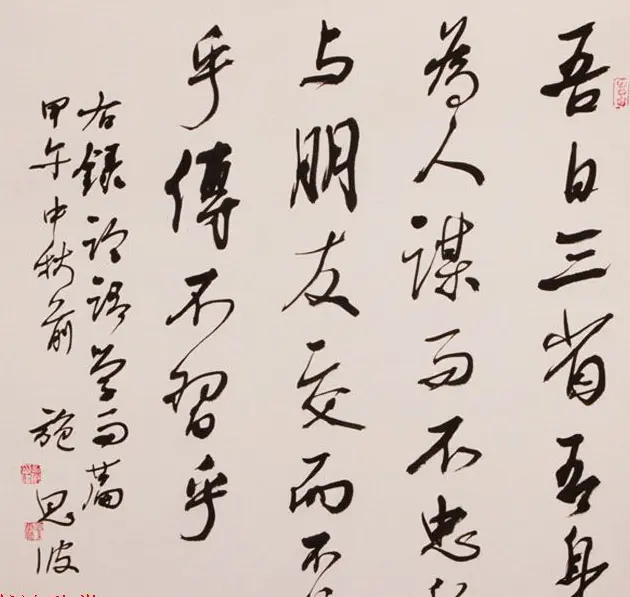 吾日三省吾身
為人謀而不忠
与朋友交而不
乎傳不習乎
右録论語学而篇
甲午中秋前 施恩波